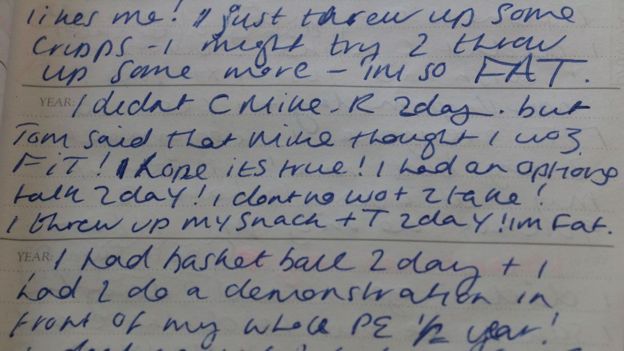 likes me! I just threw up some
cripps - I might try 2 threw
up some more - im so FAT.
YEAR: I didnt C Mike-R 2day. but
Tom said that Mike thought I woz
FiT! I hope its true! I had an options
talk 2day! i dont no wot 2 take!
I threw up my snack + T 2day! im Fat.
YEAR: I had basket ball 2 day + I
had 2 do a demonstration in
front of my whole PE 1/2 year!